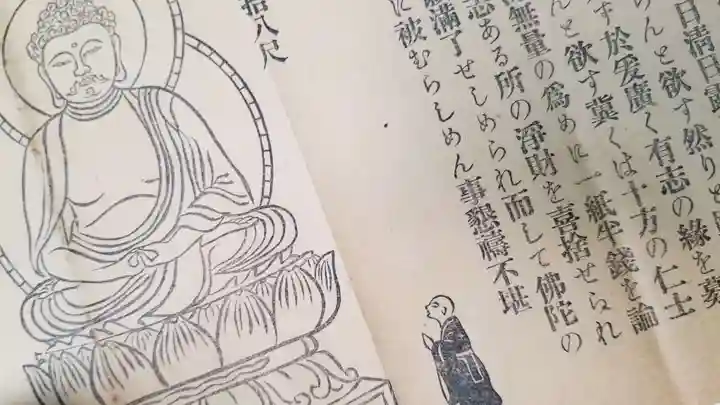 日清日露
らんと欲す然りと
す於爰廣く有志の緣を募
んと欲す冀くは十方の仁士
無量の爲めに一紙半錢を論
志ある所の淨財を喜捨せられ
滿了せしめられ而して佛陀の
に被むらしめん事懇禱不堪
拾八尺